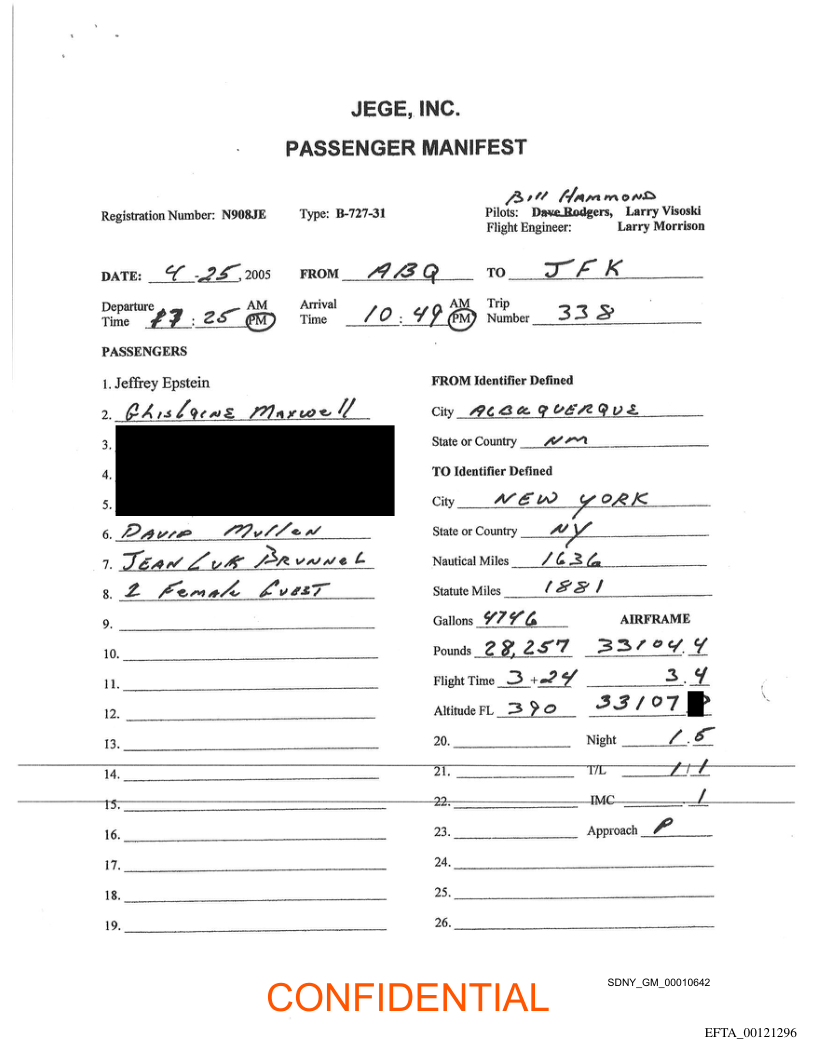 JEGE, INC.
PASSENGER MANIFEST
Bill Hammond
Registration Number: N908JE Type: B-727-31 Pilots: Dave Rodgers, Larry Visoski
Flight Engineer: Larry Morrison
DATE: 4-25, 2005 FROM ABQ TO JFK
Departure Time :25 AM PM Arrival Time 10:49 AM PM Trip Number 338
PASSENGERS
1. Jeffrey Epstein FROM Identifier Defined
2. Ghislaine Maxwell City ALBUQUERQUE
3. State or Country NM
4. TO Identifier Defined
5. City NEW YORK
6. DAVID Mullen State or Country NY
7. JEAN LUK BRUNNEL Nautical Miles 1636
8. Female GUEST Statute Miles 1881
9. Gallons 4746 AIRFRAME
10. Pounds 28,257 33104.4
11. Flight Time 3+24 3.4
12. Altitude FL 390 33107
13. 20. Night 1.5
14. 21. T/L 1/1
15. 22. IMC .1
16. 23. Approach P
17. 24.
18. 25.
19. 26.
CONFIDENTIAL
SDNY_GM_00010642
EFTA_00121296